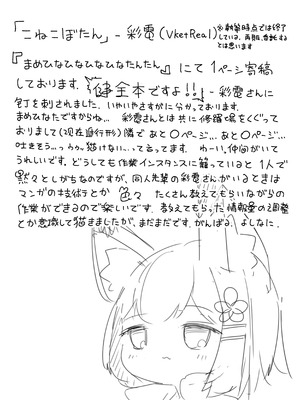 「こねこぼたん」- 彩電 (VketReal) ※執筆時点では終了
している。再販、委託する
とは思います
『まめひなひなひなひなたんたん』にて1ページ寄稿
しております。健全本ですよ!!- 彩電さんに
包丁を刺されました。いやいやさすがに分かっております。
まめひなたですからね… 彩電さんとは共に修羅場をくぐって
おりまして(現在進行形)隣で あと〇ページ… あと〇ページ…
吐きそう…っうっ。描けない…って言ってます。 わーい、仲間がいて
うれしいです。どうしても作業インスタンスに籠っていると1人で
黙々としがちなのですが、同人先輩の彩電さんがいるときは
マンガの技術とか 色々 たくさん教えてもらいながらの
作業ができるので楽しいです。教えてもらった情報量の調整
とか意識して描きましたが、まだまだです。がんばる。よしなに.